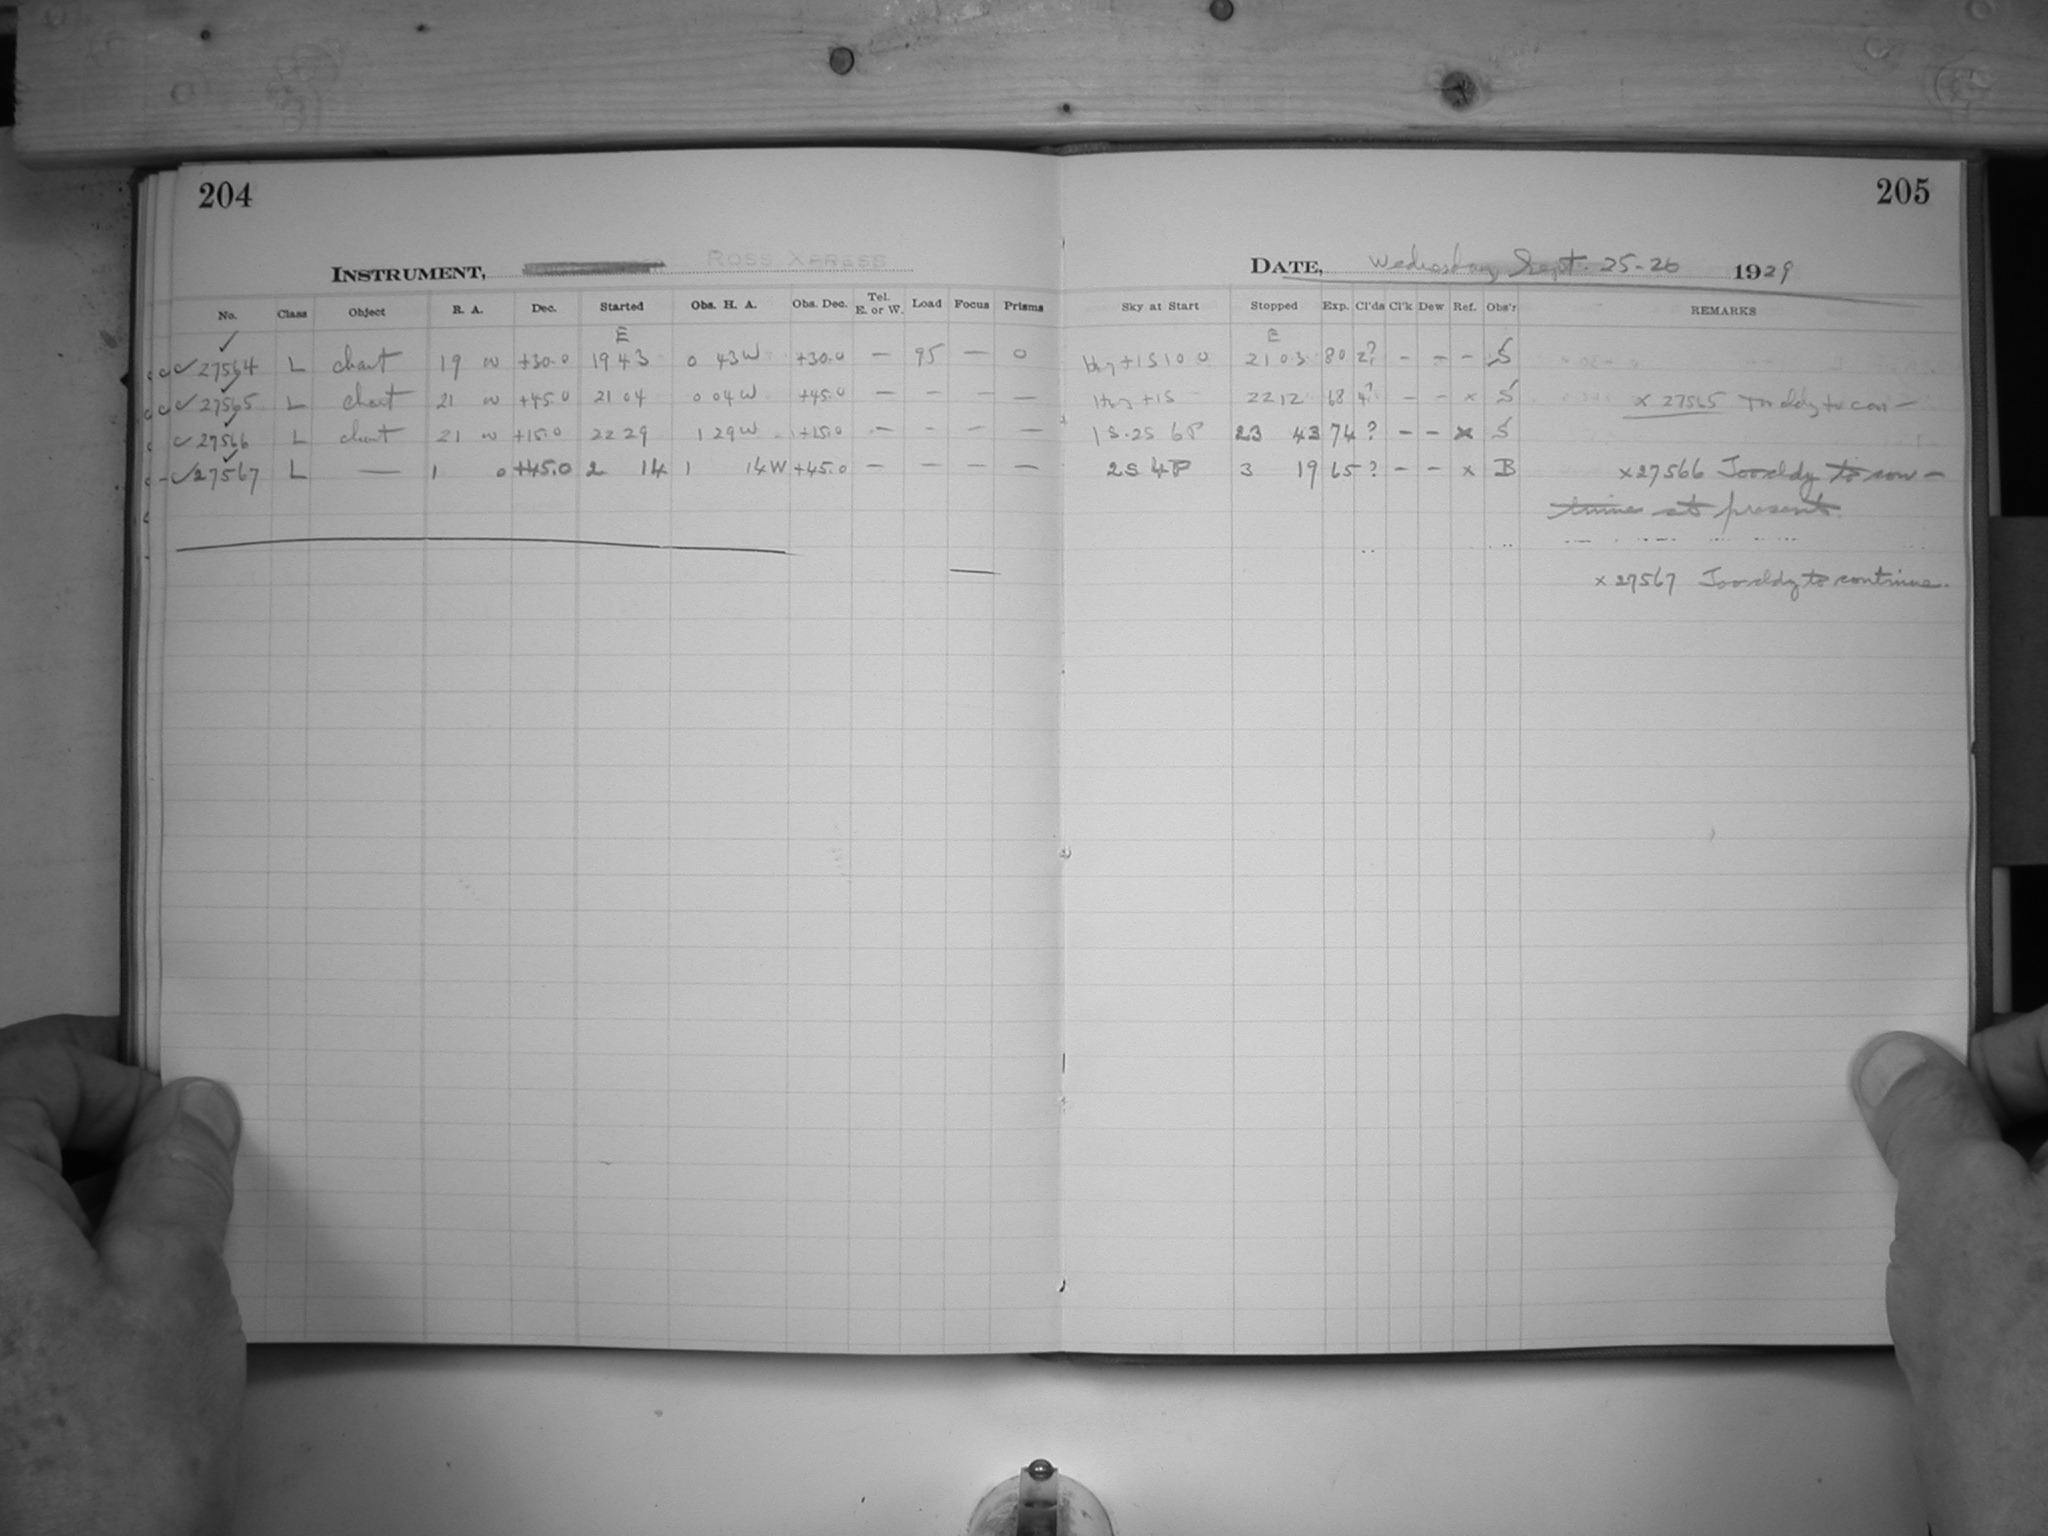 204
205
INSTRUMENT, ROSS XPRESS
DATE, Wednesday Sept. 25-26 1929
No. Class Object R. A. Dec. Started Obs. H. A. Obs. Dec. Tel. E. or W. Load Focus Prisms Sky at Start Stopped Exp. Cl'ds Cl'k Dew Ref. Obs'r REMARKS
E E
27564 L chart 19 +30.0 19 43 0 43W +30.0 — 95 — 0 Hzy +1S 10 0 21 03 80 2? - - - S
27565 L chart 21 +45.0 21 04 0 04W +45.0 — - - — Hzy +1S 22 12 68 4? - - x S x 27565 Too cldy to con-
27566 L chart 21 +15.0 22 29 1 29W +15.0 — - — — 1S.2S 6P 23 43 74 ? - - x S
27567 L — 1 0 +45.0 2 14 1 14W +45.0 — - — — 2S 4P 3 19 65 ? - - x B x 27566 Too cldy to con-
tinue at present.
x 27567 Too cldy to continue.